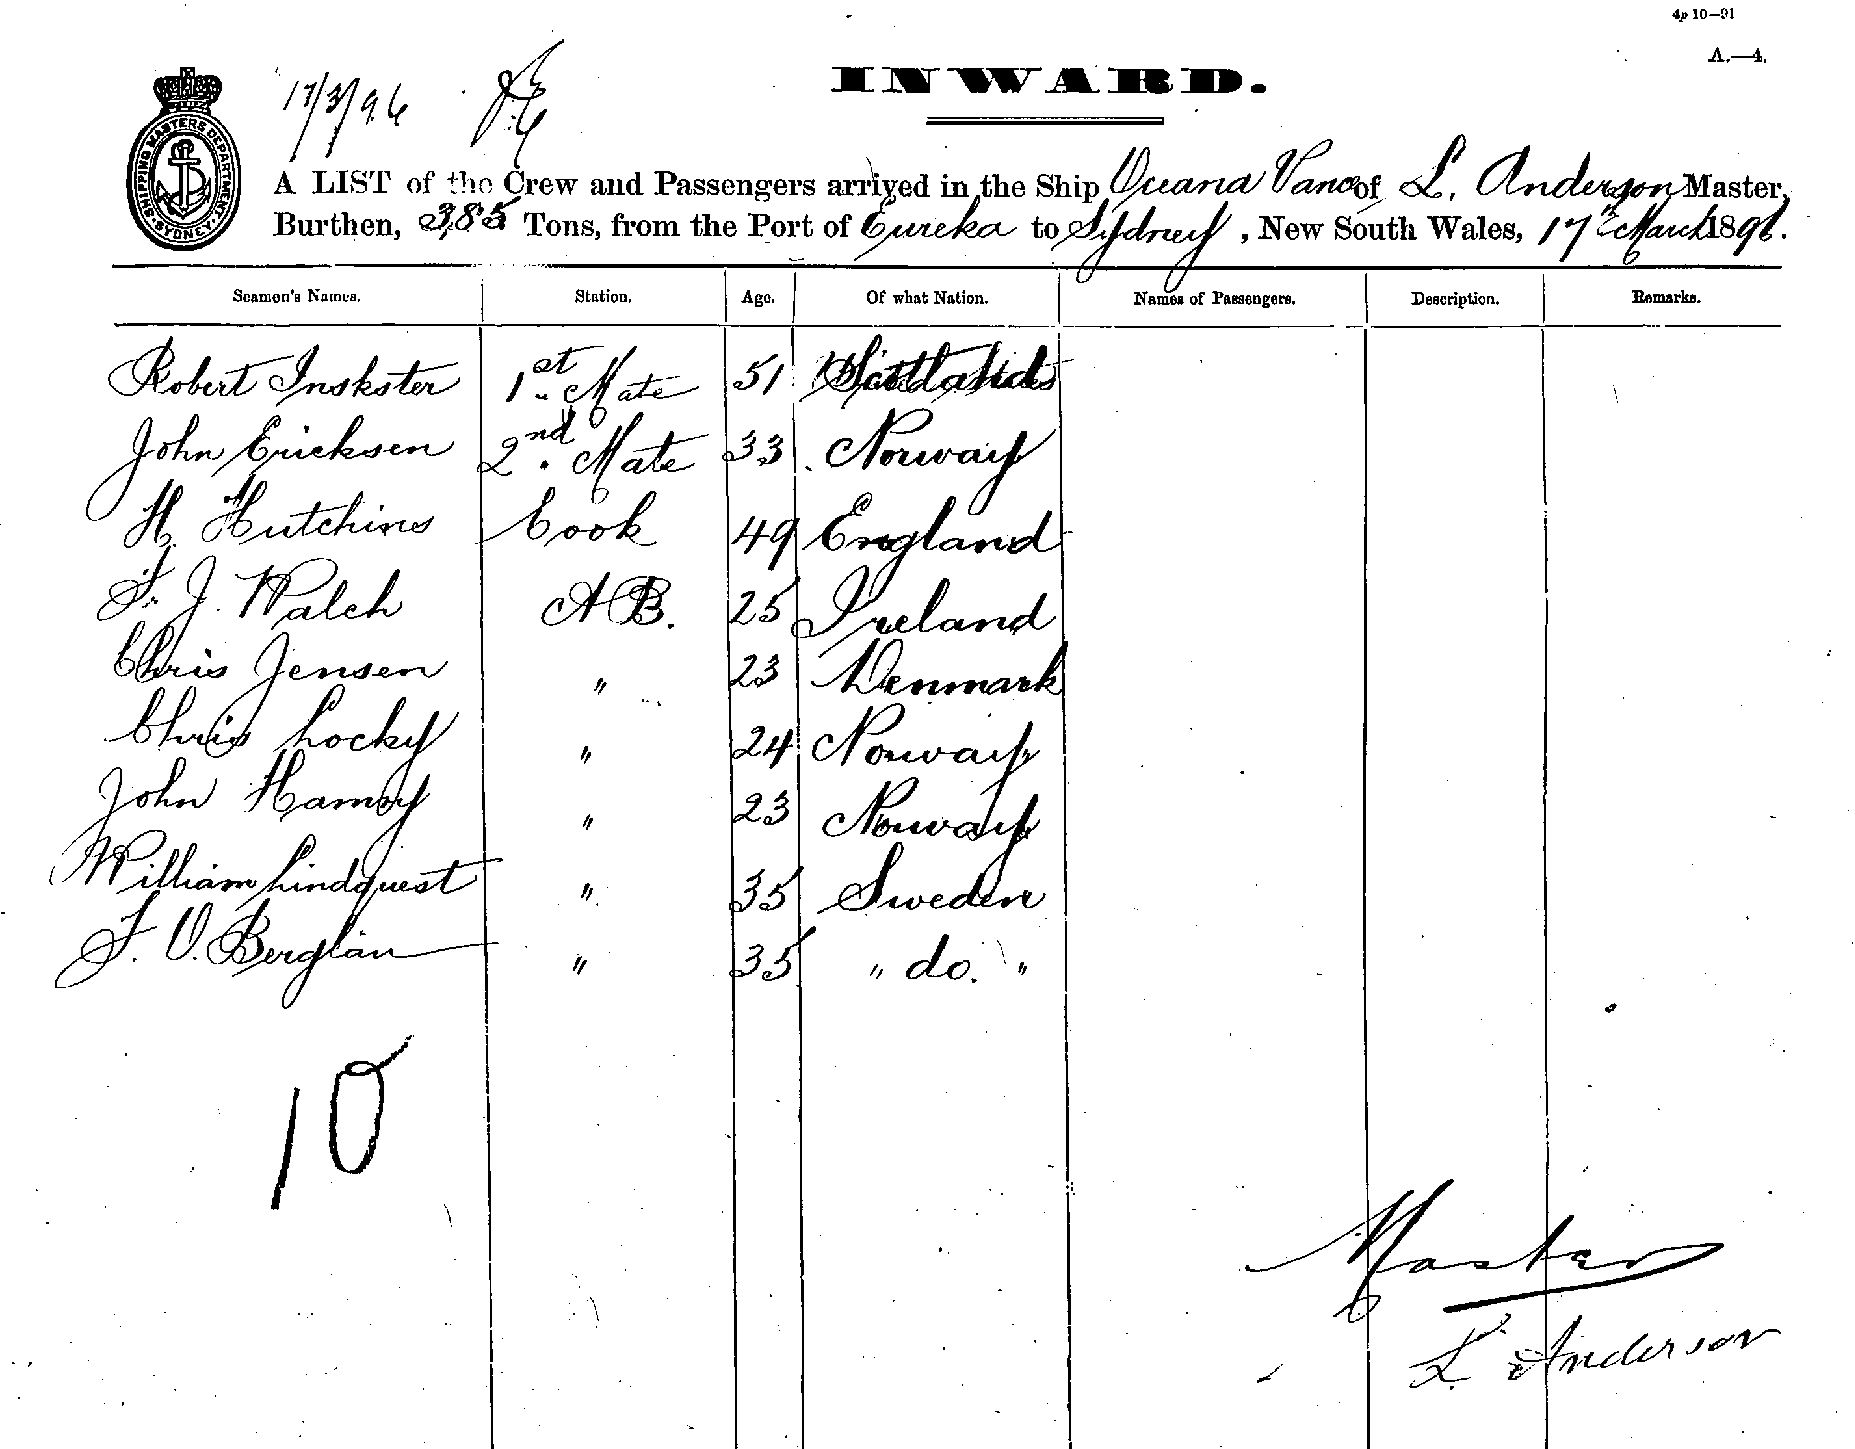 4p 10—91
A.—4.
17/3/96
INWARD.
SHIPPING MASTERS DEPARTMENT SYDNEY
A LIST of the Crew and Passengers arrived in the Ship Oceana Vance of L. Anderson Master,
Burthen, 385 Tons, from the Port of Eureka to Sydney, New South Wales, 17th March 1896.
Seamen's Names. Station. Age. Of what Nation. Names of Passengers. Description. Remarks.
Robert Inskster 1st Mate 51 Scotland
John Ericksen 2nd Mate 33 Norway
H. Hutchins Cook 49 England
F. J. Walch A B. 25 Ireland
Chris Jensen " 23 Denmark
Chris Locky " 24 Norway
John Hamoy " 23 Norway
William Lindquest " 35 Sweden
F. O. Berglan " 35 " do. "
10
Master
L. Anderson